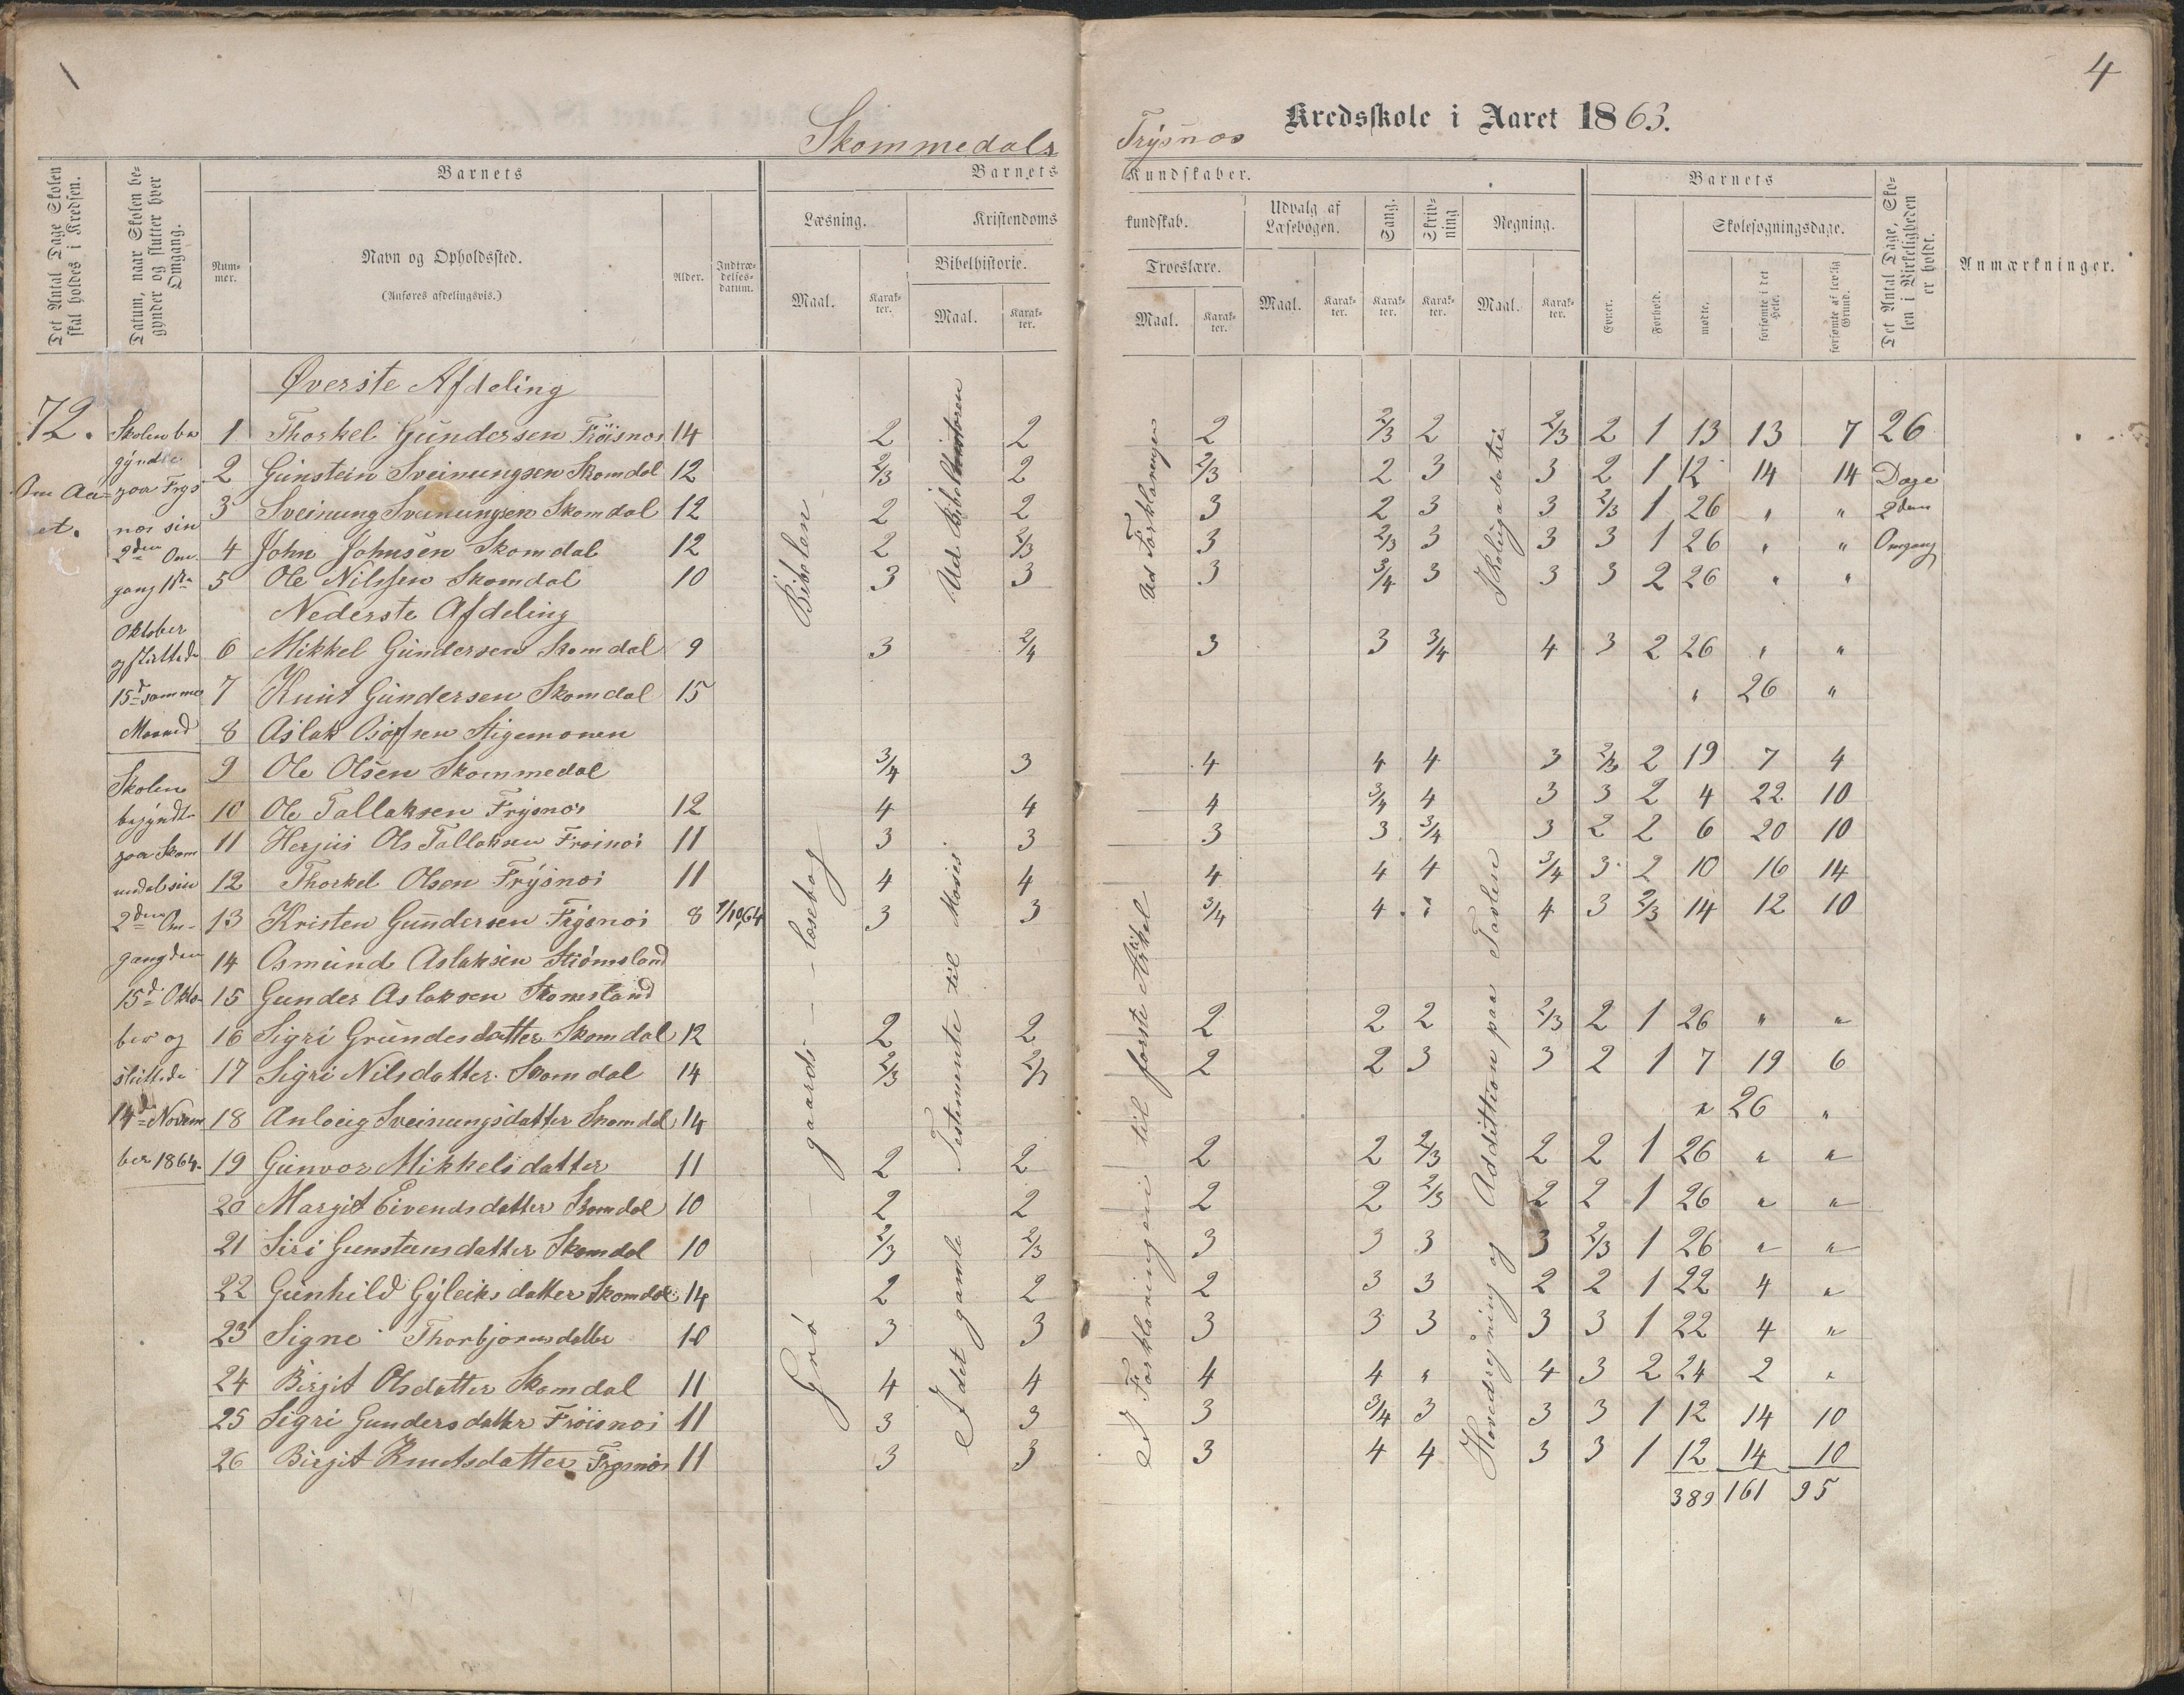 4
Skommedals
Frysnos
Kredsskole i Aaret 1863.
Det Antal Dage Skolen skal holdes i Kredsen.
Datum, naar Skolen begynder og slutter hver Omgang.
Barnets
Nummer.
Navn og Opholdssted.
(Anføres afdelingsvis.)
Alder.
Indtrædelsesdatum.
Barnets
Kundskaber.
Læsning.
Maal.
Karakter.
Kristendoms
kundskab.
Bibelhistorie.
Maal.
Karakter.
Troeslære.
Maal.
Karakter.
Udvalg af Læsebogen.
Maal.
Karakter.
Sang.
Karakter.
Skrivning
Karakter.
Regning.
Maal.
Karakter.
Barnets
Evner.
Forhold.
Skolesøgningsdage.
mødte.
forsømte i det Hele.
forsømte af lovlig Grund.
Det Antal Dage, Skolen i Virkeligheden er holdt.
Anmærkninger.
72.
Om Aaret.
Skolen be
gyndte
paa Frys
nos sin
2den Om
gang 1ste
Oktober
og sluttede
15d samme
Maaned
Skolen
begyndte
paa Skom
medal sin
2den Om-
gang den
15d Okto-
ber og
sluttede
14d Novem
ber 1864.
Øverste Afdeling
1 Thorkel Gundersen Frøisnos 14 2 2 2 2/3 2 2/3 2 1 13 13 7 26
2 Gunstein Sveinungsen Skomdal 12 2/3 2 2/3 2 3 3 2 1 12 14 14 Dage
3 Sveinung Sveinungsen Skomdal 12 2 2 3 2 3 3 2/3 1 26 " " 2den
4 John Johnsen Skomdal 12 2 2/3 3 2/3 3 3 3 1 26 " " Omgang
5 Ole Nilssen Skomdal 10 3 3 3 3/4 3 3 3 2 26 " "
Nederste Afdeling
6 Mikkel Gundersen Skomdal 9 3 2/4 3 3 3/4 4 3 2 26 " "
7 Knut Gundersen Skomdal 15 " 26 "
8 Aslak
9 Ole Olsen Skommedal 3/4 3 4 4 4 3 2/3 2 19 7 4
10 Ole Tallaksen Frysnos 12 4 4 4 3/4 4 3 3 2 4 22 10
11 Herjus Ols Tallaksen Froinos 11 3 3 3 3 3/4 3 2 2 6 20 10
12 Thorkel Olsen Frysnos 11 4 4 4 4 4 3/4 3 2 10 16 14
13 Kristen Gundersen Frysnos 8 1/10 64 3 3 3/4 4 " 4 3 2/3 14 12 10
14 Osmund Aslaksen Strømsland
15 Gunder Aslaksen
16 Sigri Grundesdatter Skomdal 12 2 2 2 2 2 2/3 2 1 26 " "
17 Sigri Nilsdatter Skomdal 14 2/3 2/3 2 2 3 3 2 1 7 19 6
18 Anloeig Sveinungsdatter Skomdal 14 " 26 "
19 Gunvor Mikkelsdatter 11 2 2 2 2 2/3 2 2 1 26 " "
20 Margit Eivendsdatter Skomdal 10 2 2 2 2 2/3 2 2 1 26 " "
21 Siri Gunsteinsdatter Skomdal 10 2/3 2/3 3 3 3 3 2/3 1 26 " "
22 Gunhild Gyleiksdatter Skomdal 14 2 2 2 3 3 2 2 1 22 4 "
23 Signe Thorbjornsdatter 10 3 3 3 3 3 3 3 1 22 4 "
24 Birgit Olsdatter Skomdal 11 4 4 4 4 " 4 3 2 24 2 "
25 Sigri Gundersdatter Frøisnos 11 3 3 3 3/4 3 3 3 1 12 14 10
26 Birgit Knutsdatter Frysnos 11 3 3 3 4 4 3 3 1 12 14 10
389 161 95
Bibelen
Grøgaards læsebog
I det gamle Testemente til Moses
Ud Forklaringen
I Forklaringen til første Artikel
Hovedregning og Addittion paa Tavlen